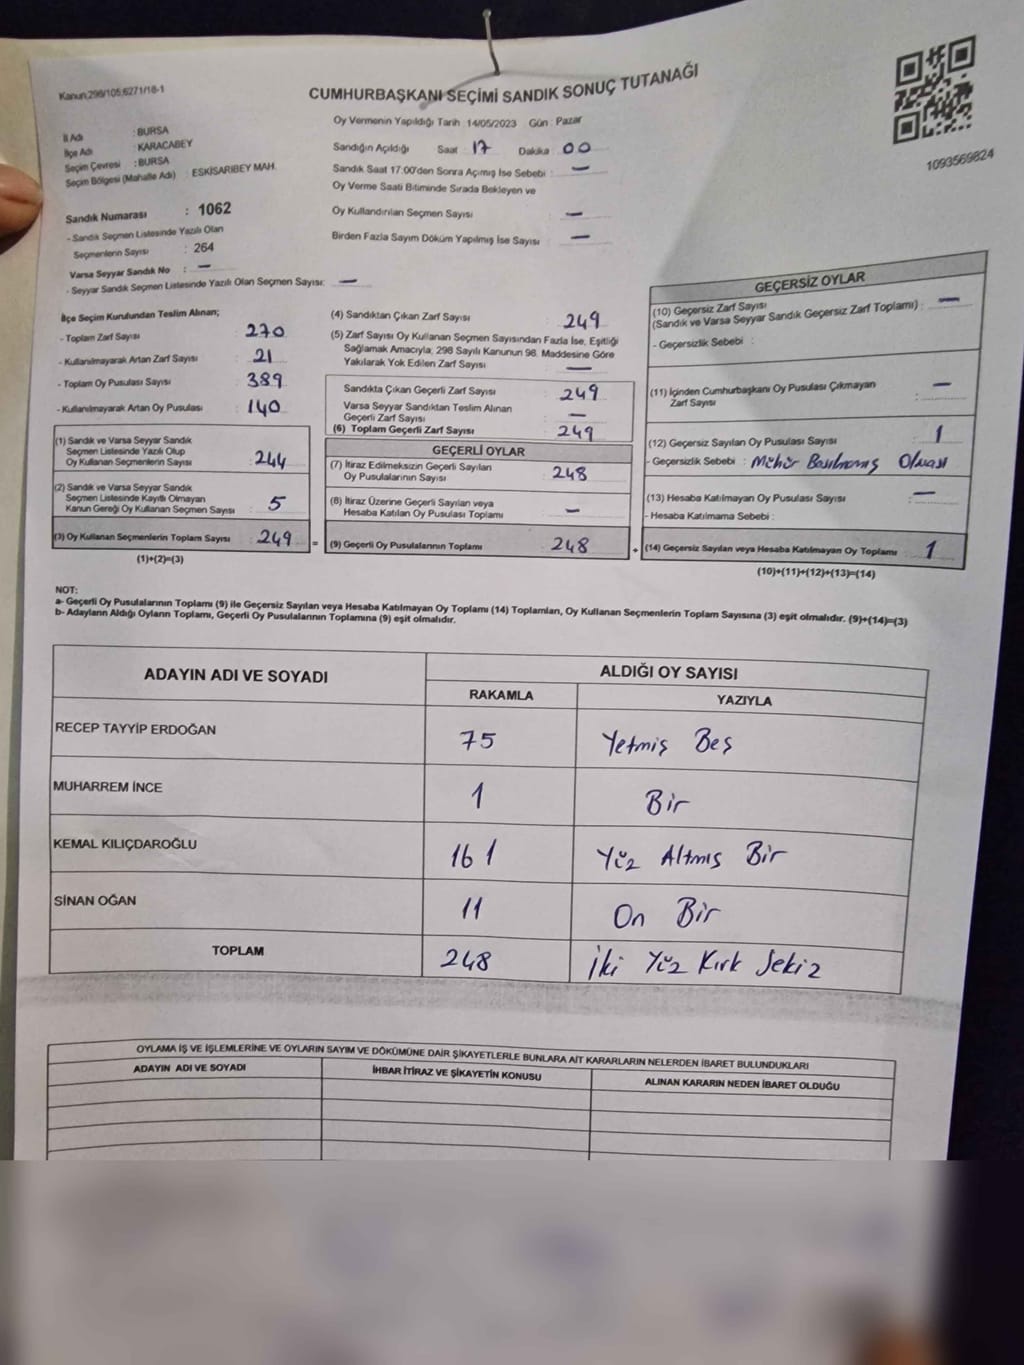 Kanun:298/105;6271/18-1
CUMHURBAŞKANI SEÇİMİ SANDIK SONUÇ TUTANAĞI
1093569824
İl Adı : BURSA
İlçe Adı : KARACABEY
Seçim Çevresi : BURSA
Seçim Bölgesi (Mahalle Adı) : ESKİSARIBEY MAH.
Sandık Numarası : 1062
- Sandık Seçmen Listesinde Yazılı Olan
Seçmenlerin Sayısı : 264
Varsa Seyyar Sandık No : —
- Seyyar Sandık Seçmen Listesinde Yazılı Olan Seçmen Sayısı: —
Oy Vermenin Yapıldığı Tarih 14/05/2023 Gün : Pazar
Sandığın Açıldığı Saat 17 Dakika 00
Sandık Saat 17:00'den Sonra Açmış İse Sebebi : —
Oy Verme Saati Bitiminde Sırada Bekleyen ve
Oy Kullandırılan Seçmen Sayısı —
Birden Fazla Sayım Döküm Yapılmış İse Sayısı —
İlçe Seçim Kurulundan Teslim Alınan;
- Toplam Zarf Sayısı 270
- Kullanılmayarak Artan Zarf Sayısı 21
- Toplam Oy Pusulası Sayısı 389
- Kullanılmayarak Artan Oy Pusulası 140
(1) Sandık ve Varsa Seyyar Sandık
Seçmen Listesinde Yazılı Olup
Oy Kullanan Seçmenlerin Sayısı 244
(2) Sandık ve Varsa Seyyar Sandık
Seçmen Listesinde Kayıtlı Olmayan
Kanun Gereği Oy Kullanan Seçmen Sayısı 5
(3) Oy Kullanan Seçmenlerin Toplam Sayısı 249
(1)+(2)=(3)
(4) Sandıktan Çıkan Zarf Sayısı 249
(5) Zarf Sayısı Oy Kullanan Seçmen Sayısından Fazla İse, Eşitliği
Sağlamak Amacıyla, 298 Sayılı Kanunun 98. Maddesine Göre
Yakılarak Yok Edilen Zarf Sayısı —
Sandıkta Çıkan Geçerli Zarf Sayısı 249
Varsa Seyyar Sandıktan Teslim Alınan
Geçerli Zarf Sayısı —
(6) Toplam Geçerli Zarf Sayısı 249
GEÇERLİ OYLAR
(7) İtiraz Edilmeksizin Geçerli Sayılan
Oy Pusulalarının Sayısı 248
(8) İtiraz Üzerine Geçerli Sayılan veya
Hesaba Katılan Oy Pusulası Toplamı —
= (9) Geçerli Oy Pusulalarının Toplamı 248
GEÇERSİZ OYLAR
(10) Geçersiz Zarf Sayısı
(Sandık ve Varsa Seyyar Sandık Geçersiz Zarf Toplamı) : —
- Geçersizlik Sebebi :
(11) İçinden Cumhurbaşkanı Oy Pusulası Çıkmayan
Zarf Sayısı : —
(12) Geçersiz Sayılan Oy Pusulası Sayısı 1
- Geçersizlik Sebebi : Mühür Basılmamış Olması
(13) Hesaba Katılmayan Oy Pusulası Sayısı —
- Hesaba Katılmama Sebebi :
+ (14) Geçersiz Sayılan veya Hesaba Katılmayan Oy Toplamı 1
(10)+(11)+(12)+(13)=(14)
NOT:
a- Geçerli Oy Pusulalarının Toplamı (9) ile Geçersiz Sayılan veya Hesaba Katılmayan Oy Toplamı (14) Toplamları, Oy Kullanan Seçmenlerin Toplam Sayısına (3) eşit olmalıdır. (9)+(14)=(3)
b- Adayların Aldığı Oyların Toplamı, Geçerli Oy Pusulalarının Toplamına (9) eşit olmalıdır.
ADAYIN ADI VE SOYADI ALDIĞI OY SAYISI
RAKAMLA YAZIYLA
RECEP TAYYİP ERDOĞAN 75 Yetmiş Beş
MUHARREM İNCE 1 Bir
KEMAL KILIÇDAROĞLU 161 Yüz Altmış Bir
SİNAN OĞAN 11 On Bir
TOPLAM 248 İki Yüz Kırk Sekiz
OYLAMA İŞ VE İŞLEMLERİNE VE OYLARIN SAYIM VE DÖKÜMÜNE DAİR ŞİKAYETLERLE BUNLARA AİT KARARLARIN NELERDEN İBARET BULUNDUKLARI
ADAYIN ADI VE SOYADI İHBAR İTİRAZ VE ŞİKAYETİN KONUSU ALINAN KARARIN NEDEN İBARET OLDUĞU